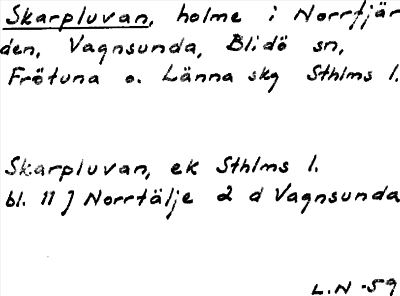 Skarpluvan, holme i Norrfjär
den, Vagnsunda, Blidö sn,
Frötuna o. Länna skg Sthlms l.
Skarpluvan, ek Sthlms l.
bl. 11 J Norrtälje 2 d Vagnsunda
L.N -59